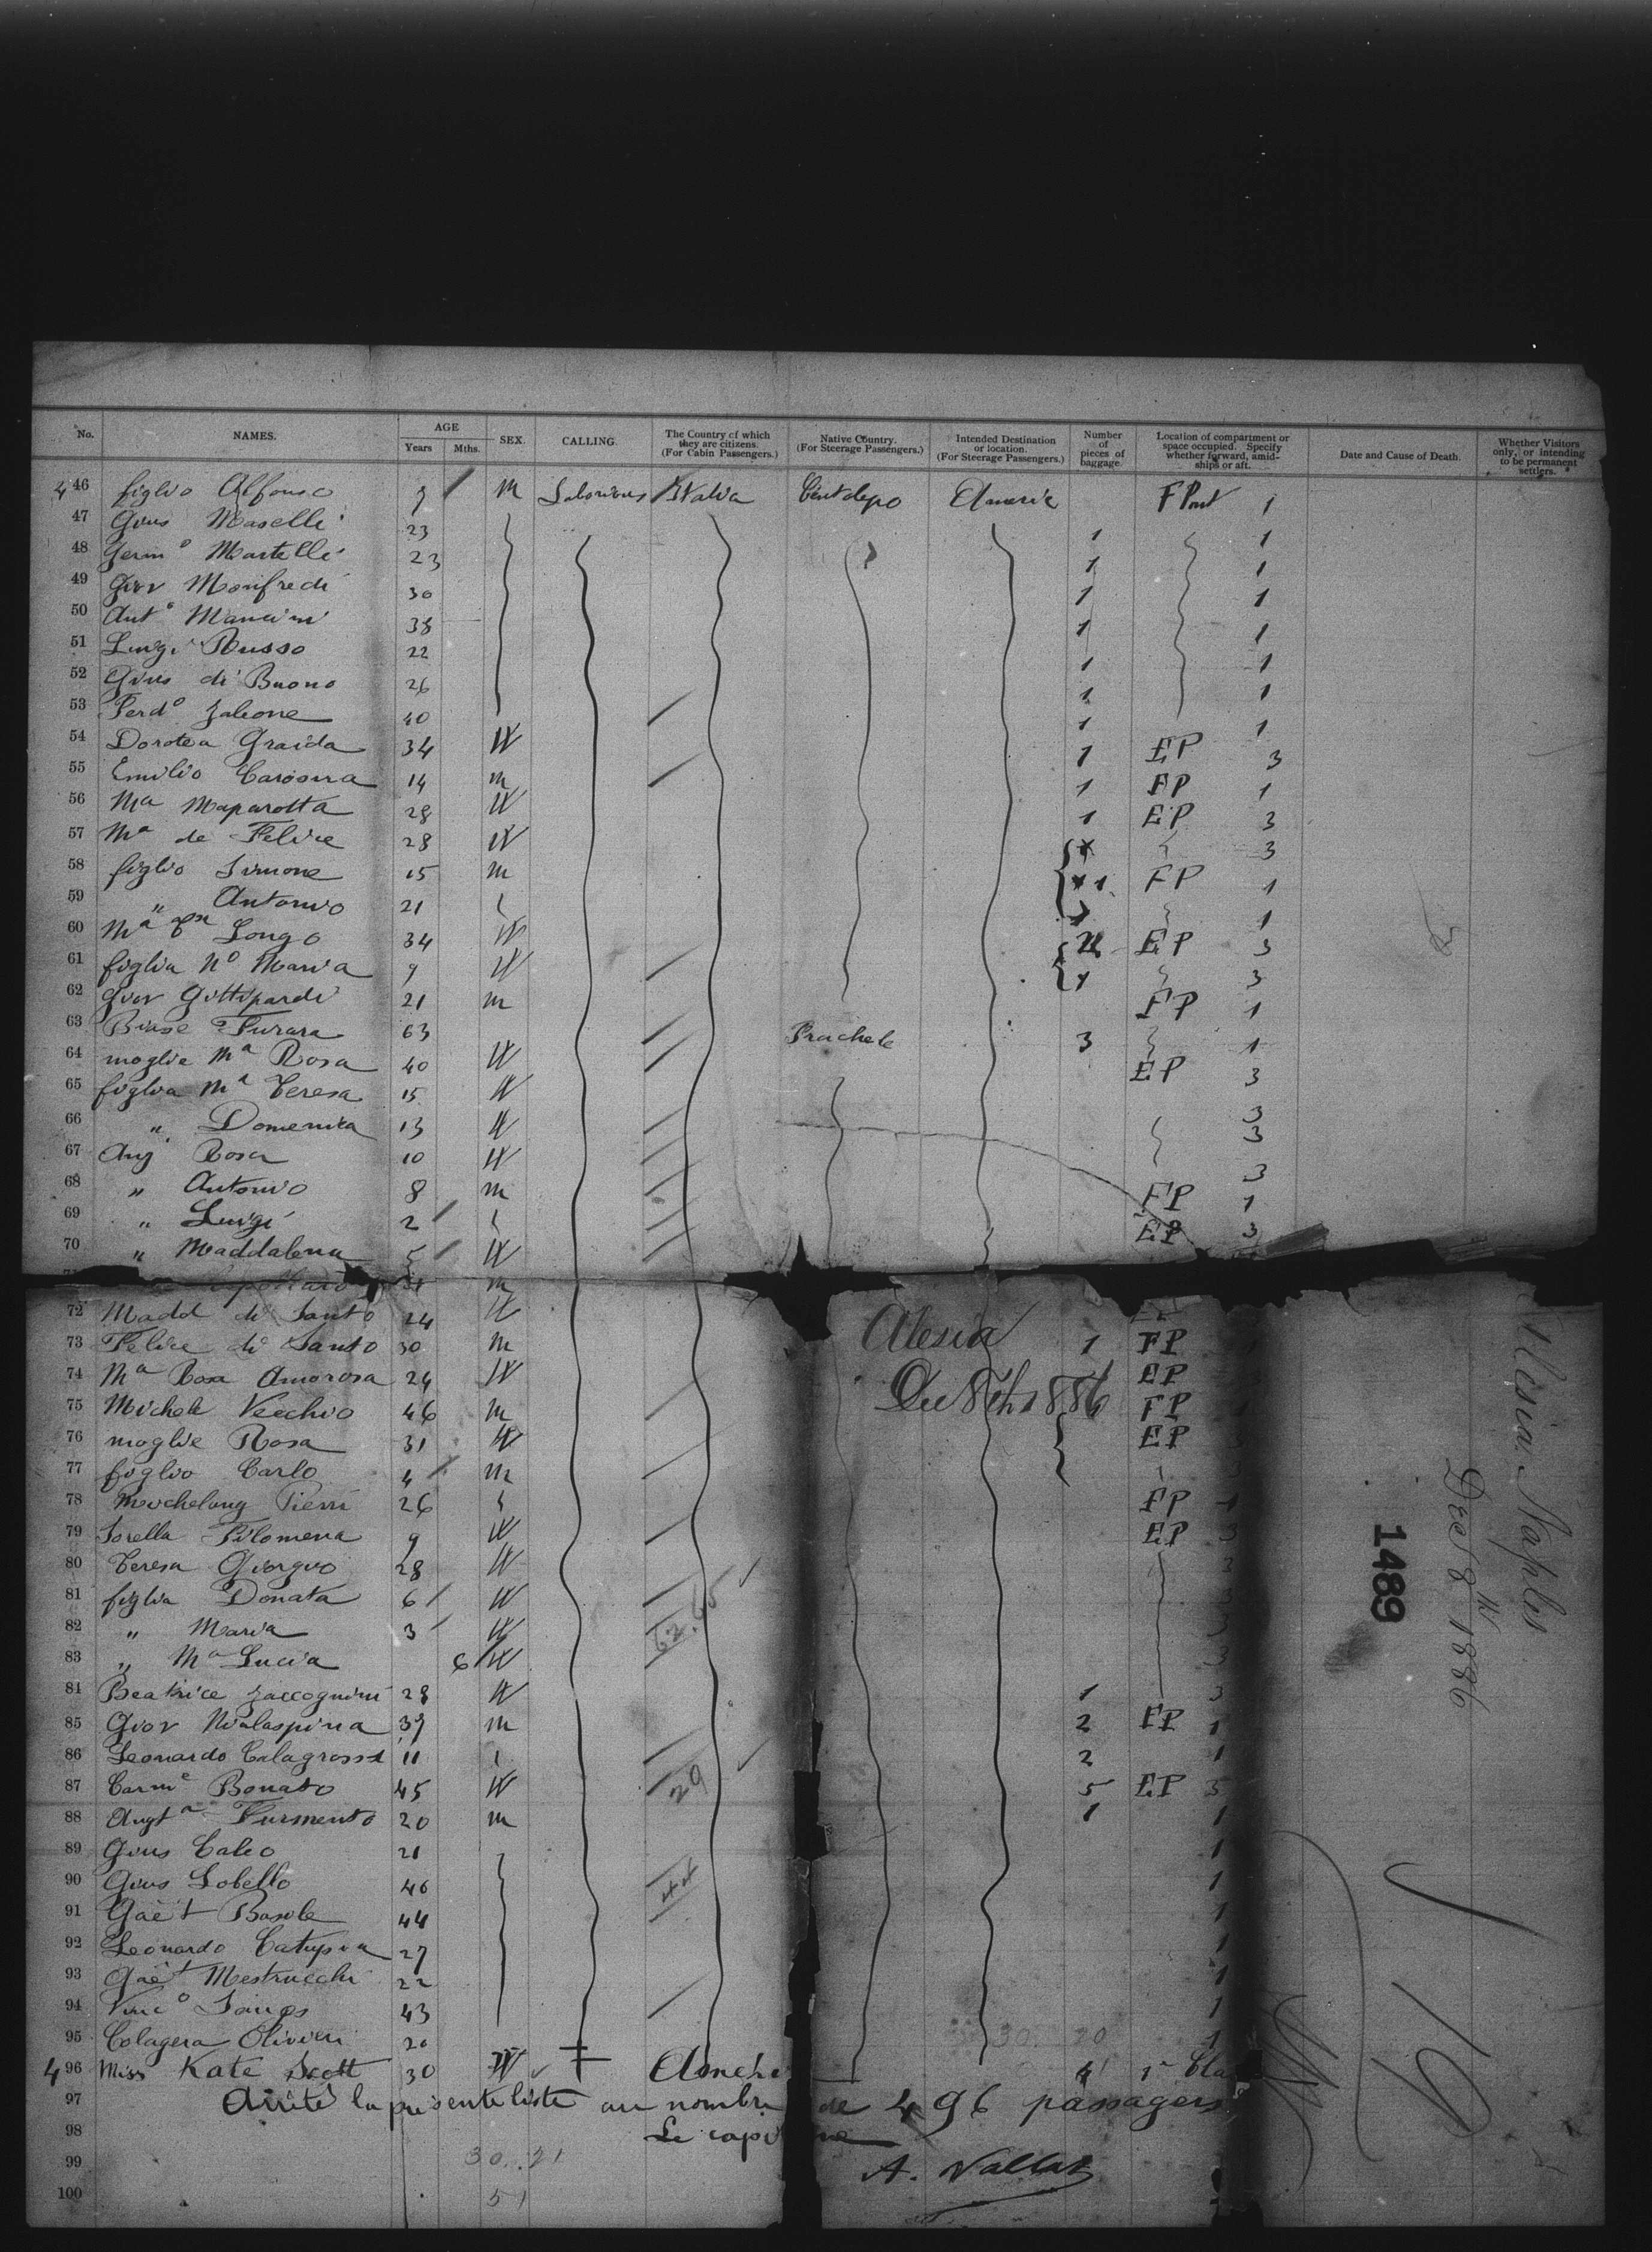 No. NAMES. AGE Years Mths. SEX. CALLING. The Country of which they are citizens. (For Cabin Passengers.) Native Country. (For Steerage Passengers.) Intended Destination or location. (For Steerage Passengers.) Number of pieces of baggage Location of compartment or space occupied. Specify whether forward, amidships or aft. Date and Cause of Death. Whether Visitors only, or intending to be permanent settlers.
4 46 figlio Alfonso 9 M Italia 1
47 Gius Maselli 23 1 1
48 Germ° Martelli 23 1 1
49 Giov Monfredi 30 1 1
50 Ant° Mancini 38 1 1
51 Luigi Russo 22 1 1
52 Gius di Buono 26 1 1
53 Ferd° Zaleone 40 1 1
54 Dorotea Graida 34 W 1 EP 3
55 Emilio 14 m 1 FP 1
56 Ma Maparotta 28 W 1 EP 3
57 Ma de Felice 28 W 3
58 figlio Simone 15 m 1 FP 1
59 " Antonio 21 1
60 Ma Longo 34 W EP 3
61 figlia N° Maria 9 W 3
62 Giov 21 m FP 1
63 Biase Furara 63 3 1
64 moglie Ma Rosa 40 W EP 3
65 figlia Ma Teresa 15 W 3
66 " Domenica 13 W 3
67 Ang Rosa 10 W 3
68 " Antonio 8 m FP 1
69 " Luigi 2 EP 3
70 " Maddalena 5 W
31 m
72 Madd di Santo 24 W
Alesia
73 Felice di Santo 30 m 1 FP
74 Ma Rosa Amorosa 24 W EP
Dec 8th 1886
75 Michele Vecchio 46 m FP
76 moglie Rosa 31 W EP
77 figlio Carlo 4 m
78 Michelang Pierri 26 FP
79 Sorella Filomena 9 W EP 3
80 Teresa Giorguo 28 W 3
81 figlia Donata 6 W
82 " Maria 3 W
83 " Ma Lucia 6 W
84 Beatrice Zaccognini 28 W 1 3
85 Giov Malaspina 39 m 2 FP 1
86 Leonardo Calagrossi 11 2 1
87 Carme Bonato 45 W 29 5 EP 3
88 Angta Furmento 20 m 1 1
89 Gius Caleo 21 1
90 Gius Lobello 46 44 1
91 Gaet Basole 44 1
92 Leonardo 27 1
93 Gaet Mestrucchi 22 1
94 Vinc° 43 1
95 Colagera Olivieri 20 1
30 20
4 96 Miss Kate Scott 30 W 4 1r Cla
97 Arrêté la présente liste au nombre de 496 passagers
98 Le capi ne
99 30 . 21 A. Vallat
100 51
Alesia. Naples
Dec 8th 1886
1489